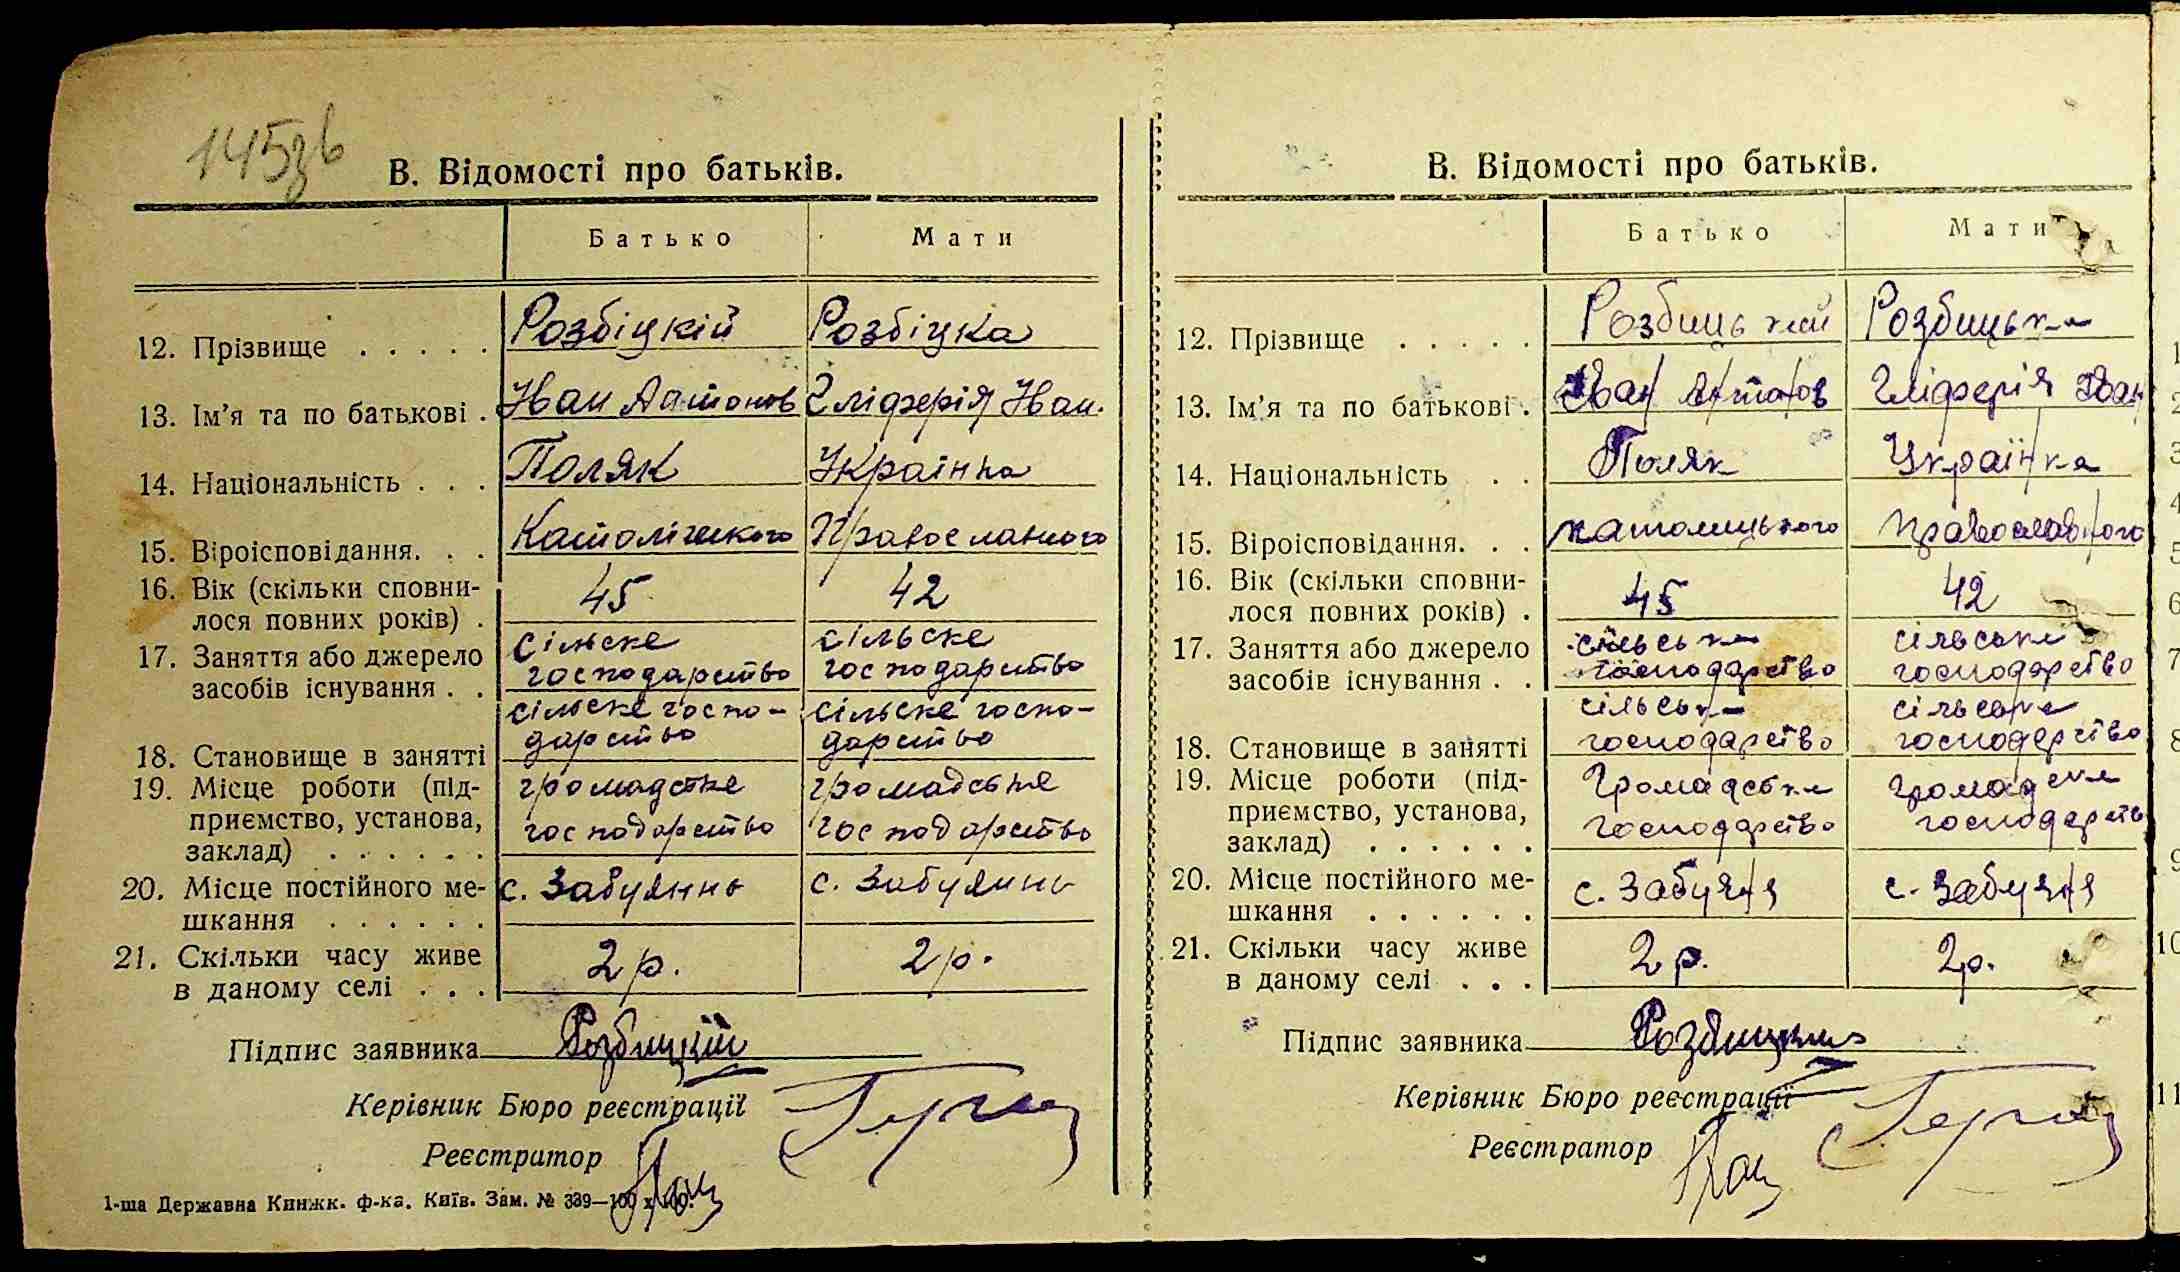 145зв
В. Відомості про батьків.
Батько Мати
12. Прізвище . . . . . Розбіцкій Розбіцка
13. Ім'я та по батькові . Іван Антонов Гліферія Іван.
14. Національність . . . Поляк Українка
15. Віроісповідання. . . Католічиского Православного
16. Вік (скільки сповни-
лося повних років) . 45 42
17. Заняття або джерело сільске сільске
засобів існування . . господарство господарство
сільске госпо- сільске госпо-
18. Становище в занятті дарство дарство
19. Місце роботи (під- громадске громадське
приємство, установа, господарство господарство
заклад) . . . . . .
20. Місце постійного ме- с. Забуяннь с. Забуяннь
шкання . . . . . .
21. Скільки часу живе 2 р. 2 р.
в даному селі . . .
Підпис заявника Розбицкій
Керівник Бюро реєстрації
Реєстратор
1-ша Державна Книжк. ф-ка. Київ. Зам. № 339—100 х 100.
В. Відомості про батьків.
Батько Мати
12. Прізвище . . . . . Розбицький Розбицька
13. Ім'я та по батькові . Іван Антонов Гліферія Іван
14. Національність . . Поляк Українка
15. Віроісповідання. . . католицького православного
16. Вік (скільки сповни-
лося повних років) . 45 42
17. Заняття або джерело сільське сільське
засобів існування . . господарство господарство
сільське сільське
18. Становище в занятті господарство господарство
19. Місце роботи (під- Громадське громадске
приємство, установа, господарство господарств
заклад) . . . . . .
20. Місце постійного ме- с. Забуяня с. Забуяня
шкання . . . . . .
21. Скільки часу живе 2 р. 2 р.
в даному селі . . .
Підпис заявника
Керівник Бюро реєстрації
Реєстратор